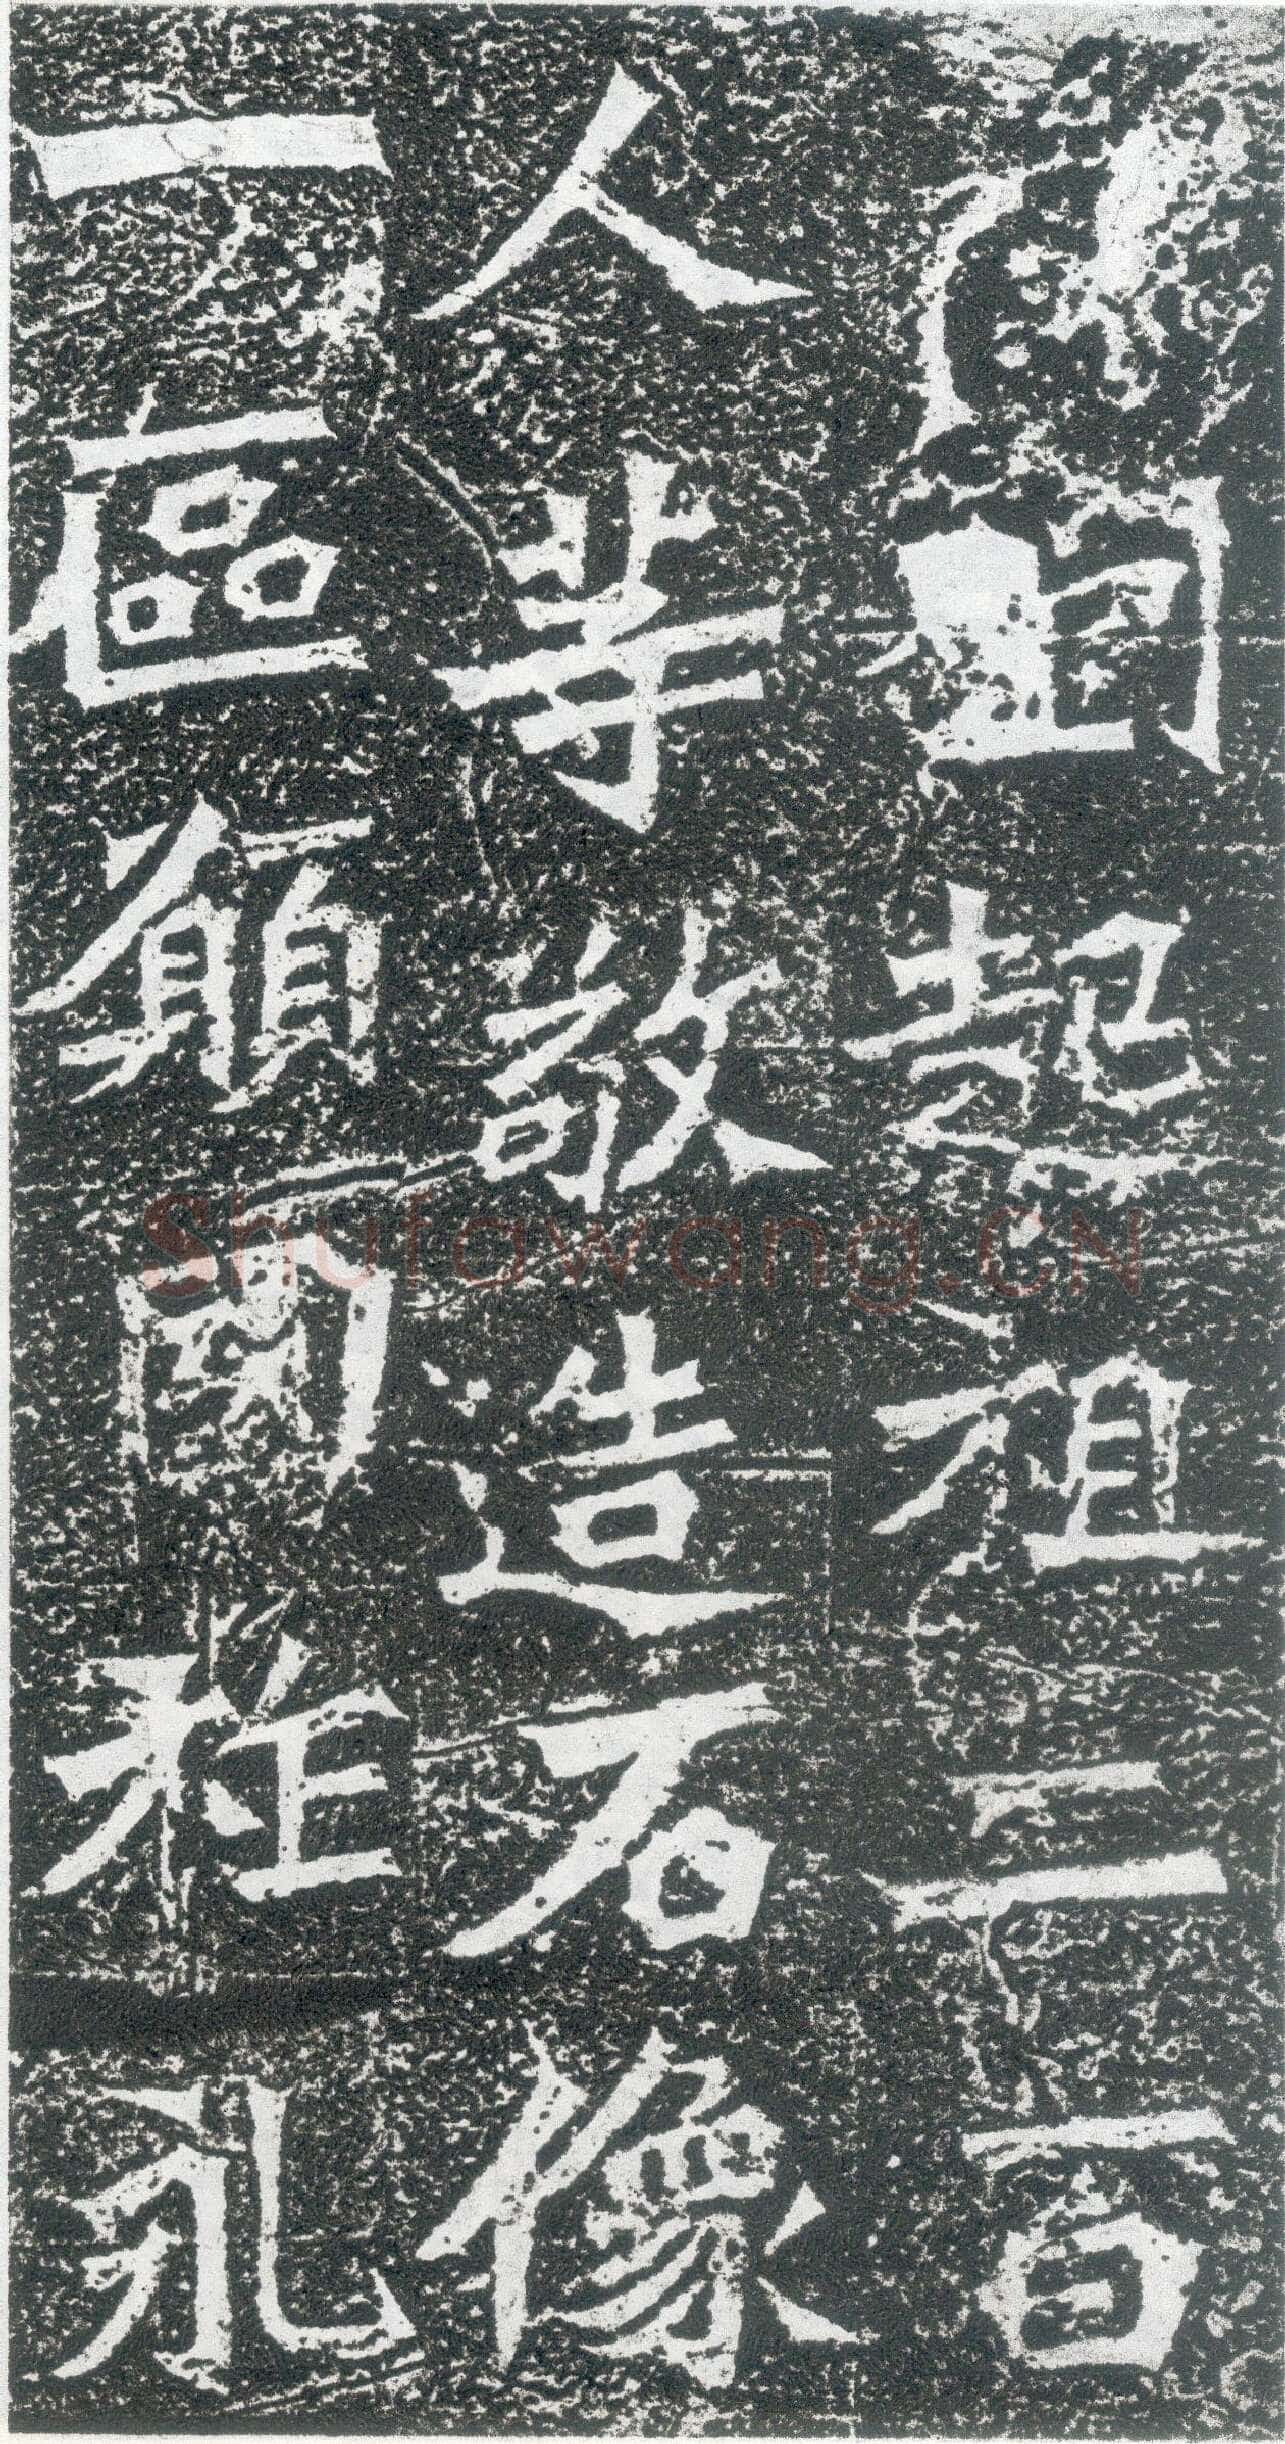 劉起祖二百
人等敬造石像
一區願國祚永
Shufawang.CN